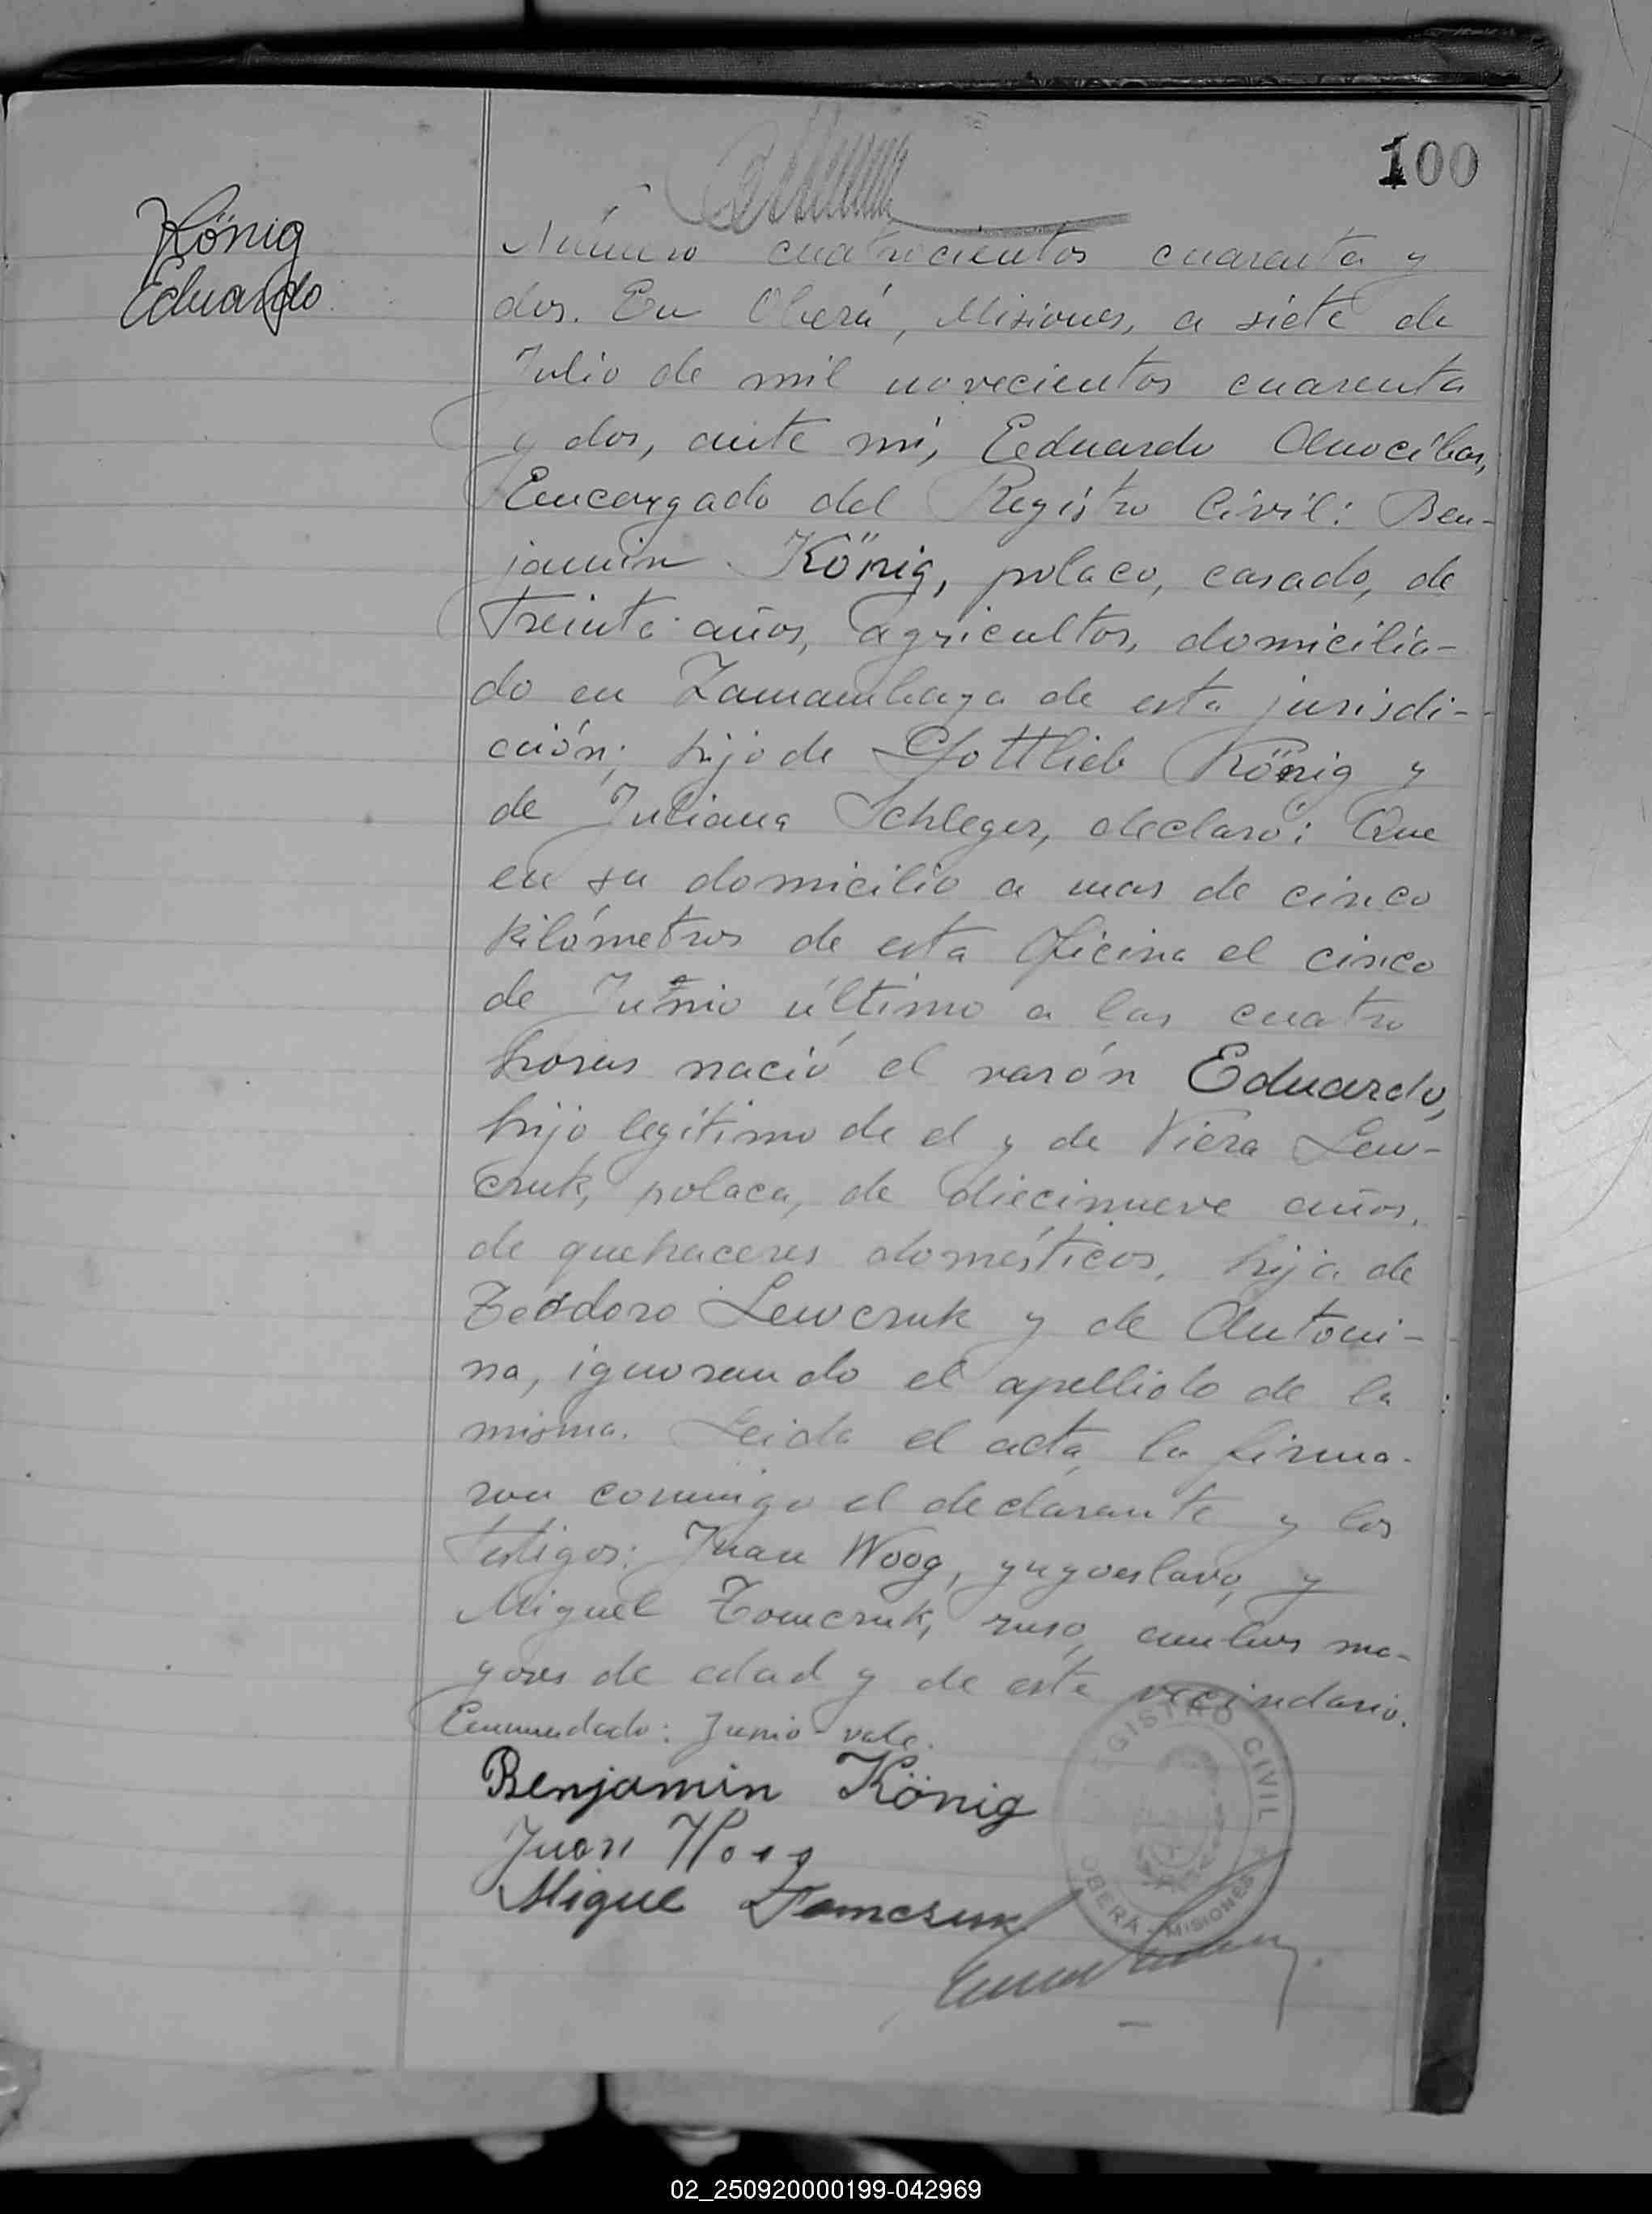 100
König
Eduardo
Número cuatrocientos cuarenta y
dos. En Oberá, Misiones, a siete de
Julio de mil novecientos cuarenta
y dos, ante mí, Eduardo
Encargado del Registro Civil: Ben-
jamin König, polaco, casado, de
treinta años, agricultor, domicilia-
do en Zamambaya de esta jurisdi-
cción; hijo de Gottlieb König y
de Juliana Schleger, declaró: Que
en su domicilio a mas de cinco
kilómetros de esta Oficina el cinco
de Junio último a las cuatro
horas nació el varón Eduardo,
hijo legítimo de el y de Viera Lew-
czuk, polaca, de diecinueve años,
de quehaceres domésticos, hija de
Teodoro Lewczuk y de Antoni-
na, ignorando el apellido de la
misma. Leida el acta, la firma-
ron conmigo el declarante y los
testigos: Juan Woog, yugoeslavo, y
Miguel Tomczuk, ruso, ambos ma-
yores de edad y de este vecindario.
Enmendado: Junio-vale.
Benjamin König
Juan
Miguel Tomczuk
REGISTRO CIVIL
OBERÁ - MISIONES
02_250920000199-042969